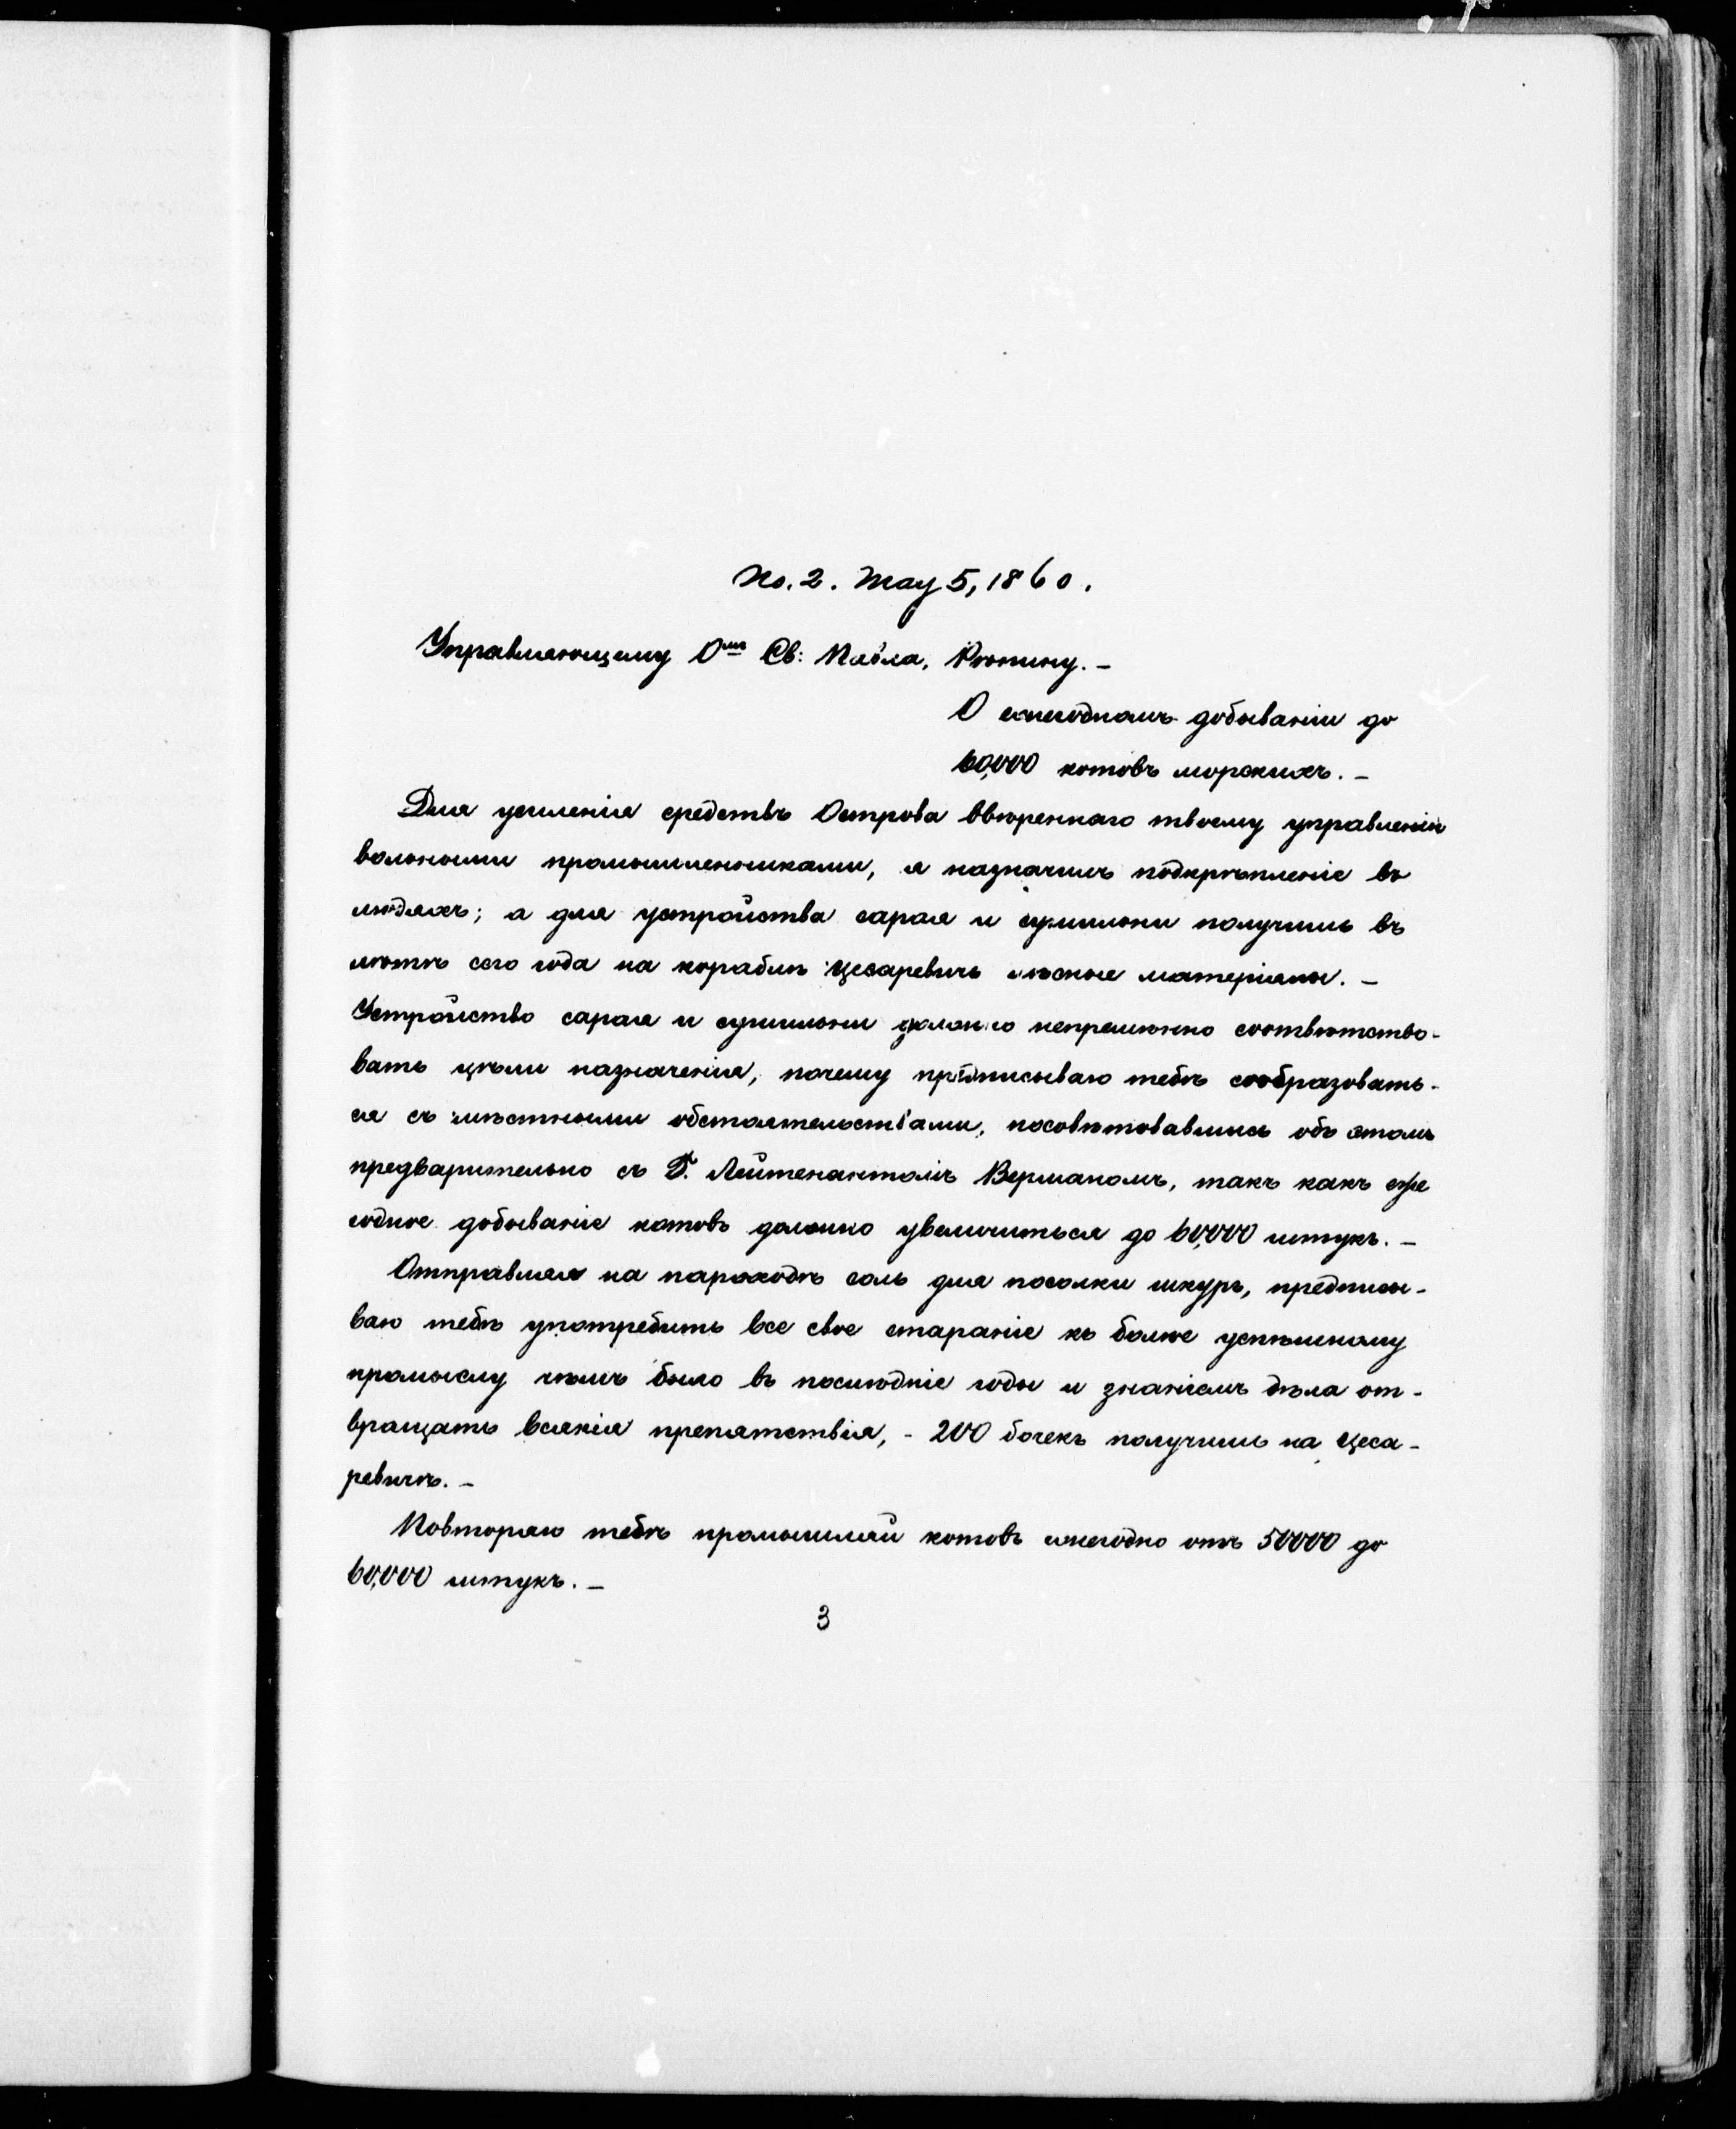 No. 2. May 5, 1860.
Управляющему О<sup>ма</sup> Св: Павла, Рюпину. –
О ежегодномъ добываніи до
60,000 котовъ морскихъ. –
Для усиленія средствъ Острова ввѣреннаго твоему управленію
вольными промышленниками, я назначилъ подкрѣпленіе въ
людяхъ; а для устройства сарая и сушильни получишь въ
лѣтѣ сего года на кораблѣ Цесаревичъ лѣсные матеріалы. –
Устройство сарая и сушильни должно непремѣнно соотвѣтство-
вать цѣли назначенія, почему предписываю тебѣ сообразовать-
ся съ мѣстными обстоятельствами, посовѣтовавшись объ этомъ
предварительно съ Г. Лейтенантомъ Верманомъ, такъ какъ еже
годное добываніе котовъ должно увеличиться до 60,000 штукъ. –
Отправляя на пароходѣ соль для посолки шкуръ, предписы-
ваю тебѣ употребить все свое стараніе къ болѣе успѣшному
промыслу чѣмъ было въ послѣдніе годы и знаніемъ дѣла от-
вращать всякія препятствія, - 200 бочекъ получишь на Цеса-
ревичѣ. –
Повторяю тебѣ промышляй котовъ ежегодно отъ 50000 до
60,000 штукъ. –
3